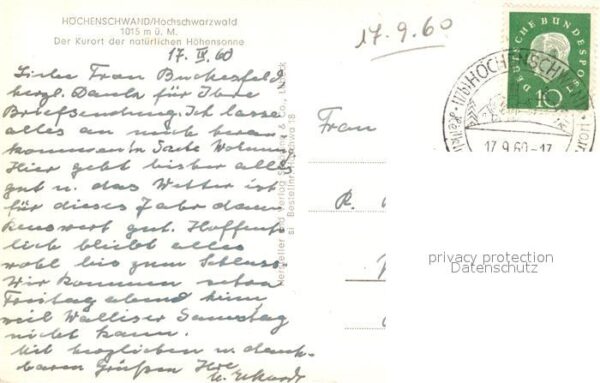 HÖCHENSCHWAND/Hochschwarzwald
1015 m ü. M.
Der Kurort der natürlichen Höhensonne
17.9.60
17. IX. 60
Liebe Frau Buckesfeld
herzl. Dank für Ihre
Briefsendung. Ich lasse
alles an mich heran
kommen in Sache Wohnung
Hier geht bisher alles
gut u. das Wetter ist
für dieses Jahr dan
kenswert gut. Hoffent
lich bleibt alles
wohl bis zum Schluss.
Wir kommen schon
Freitag abend heim,
weil Walliser Samstag
nicht kann.
Mit herzlichen u. dank-
baren Grüßen Ihre
U. Eckardt
Hersteller und Verlag & Co., Lübeck
Bestellnr. 18
Frau
R.
DEUTSCHE BUNDESPOST
10
HÖCHENSCHWAND
17.9.60-17
privacy protection
Datenschutz